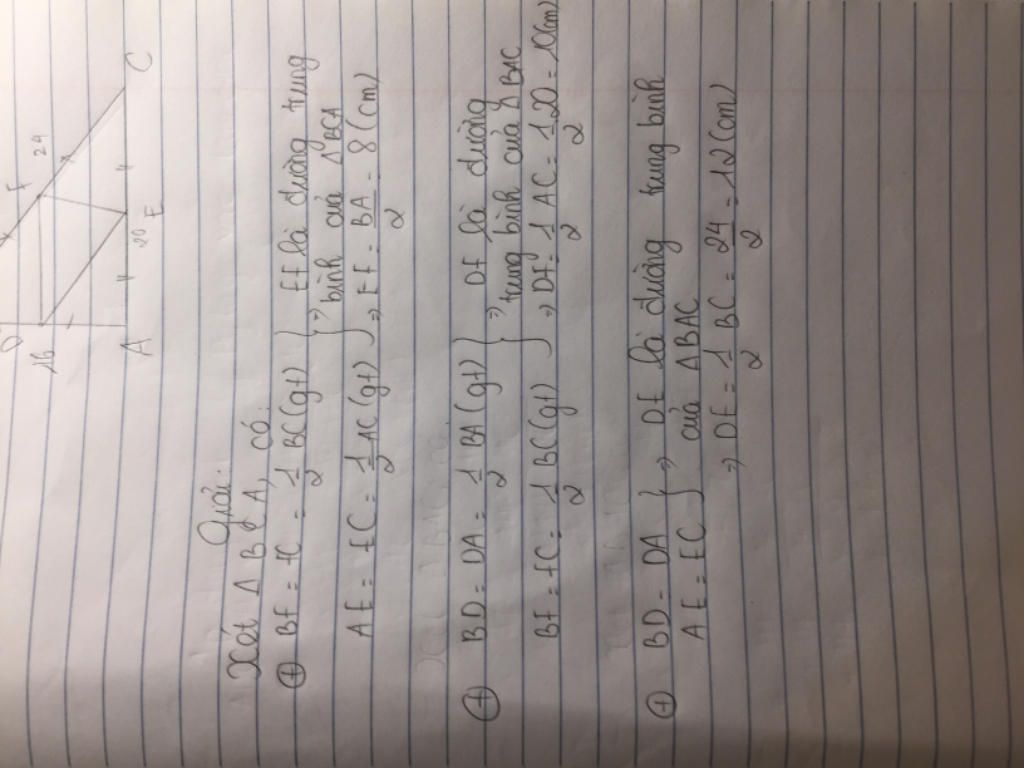 D
F
24
16
A
E
20
C
Giải:
Xét Δ BCA, có:
⊕ BF = FC = 1/2 BC (gt) } ⇒ EF là đường trung
bình của Δ BCA
AE = EC = 1/2 AC (gt) } ⇒ EF = BA/2 = 8 (cm)
⊕ BD = DA = 1/2 BA (gt) } DF là đường
⇒ trung bình của Δ BAC
BF = FC = 1/2 BC (gt) } ⇒ DF = 1/2 AC = 1/2 20 = 10 (cm)
⊕ BD = DA } ⇒ DE là đường trung bình
AE = EC } của Δ BAC
⇒ DE = 1/2 BC = 24/2 = 12 (cm)